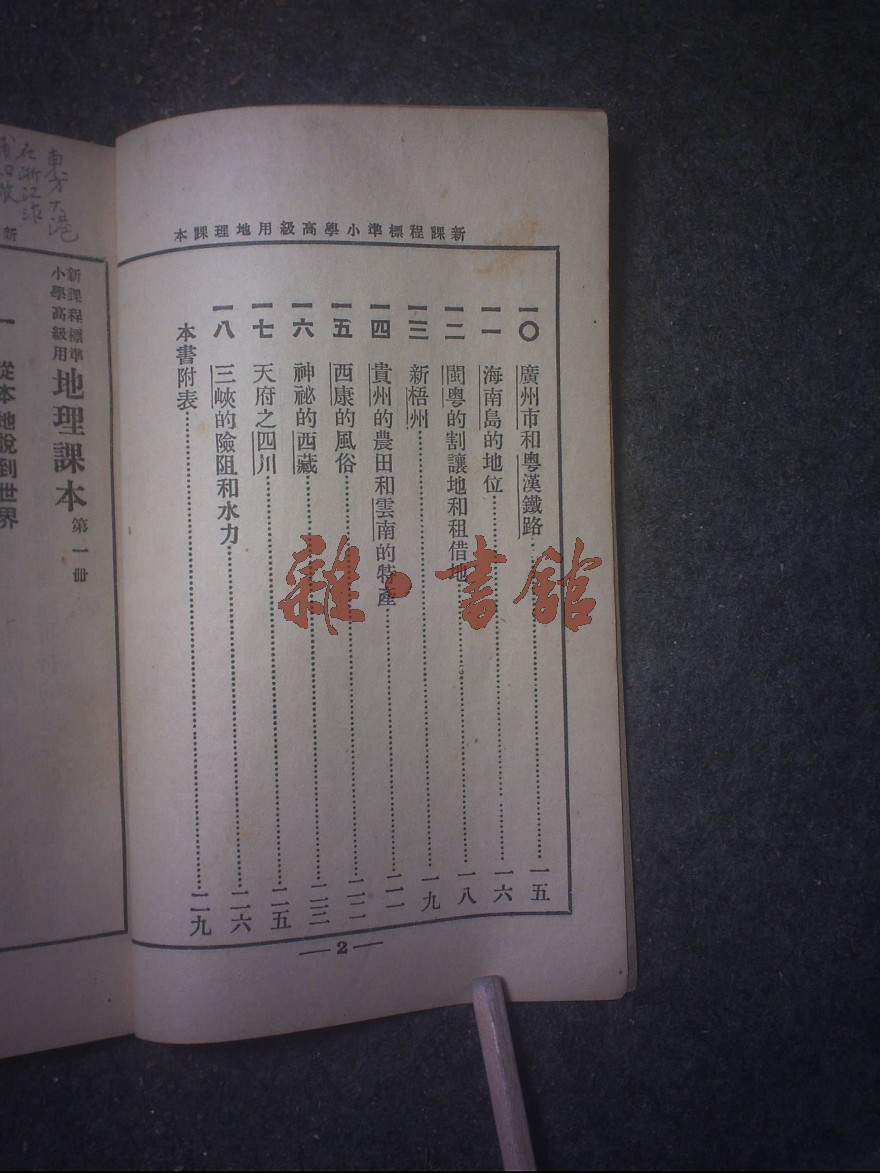 新課程標準小學高級用地理課本
一〇 廣州市和粵漢鐵路……一五
一一 海南島的地位……一六
一二 閩粵的割讓地和租借地……一八
一三 新梧州……一九
一四 貴州的農田和雲南的特產……二一
一五 西康的風俗……二二
一六 神祕的西藏……二三
一七 天府之四川……二五
一八 三峽的險阻和水力……二六
本書附表……二九
2
雜·書館
東方大港
在浙江
新
新課程標準
小學高級用
地理課本 第一冊
一 從本地說到世界